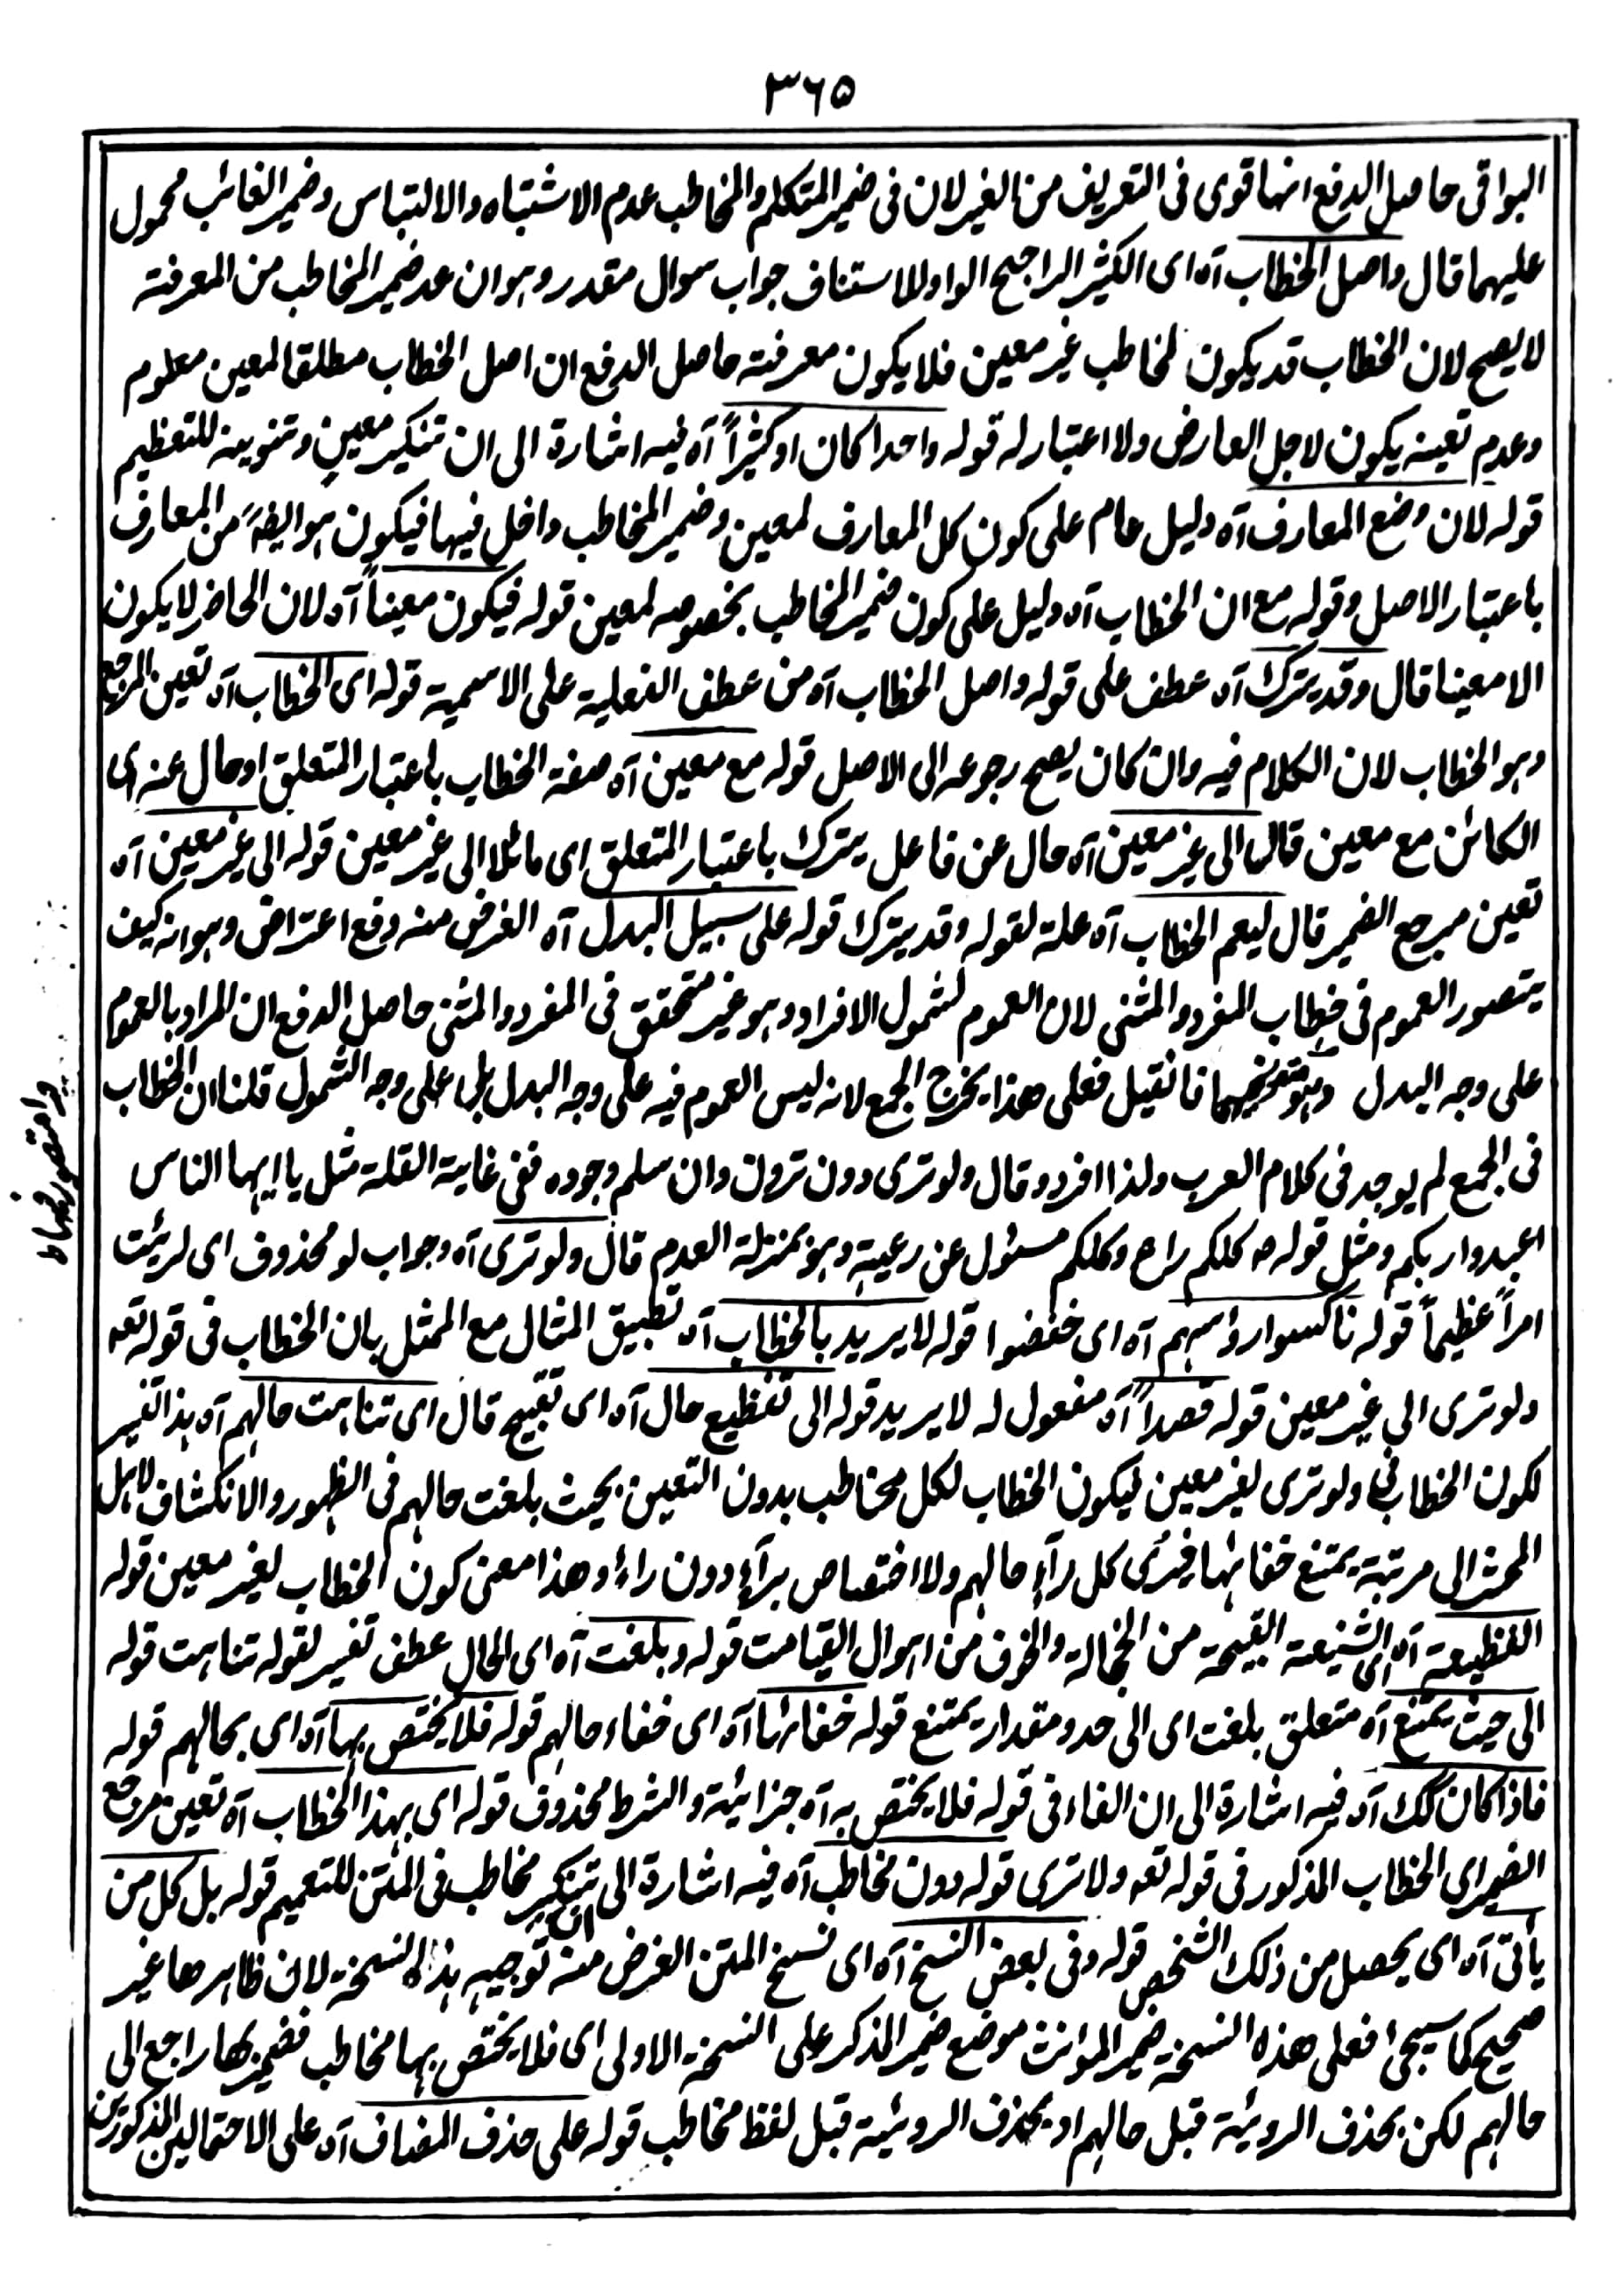 ۳۶۵
البواقی حاصل الدفع انہا قوی فی التعریف من الغیر لان فی ضمیر المتکلم والمخاطب عدم الاشتباہ والالتباس وضمیر الغائب محمول
علیہما قال واصل الخطاب آہ ای الکثیر الراجح الواو للاستناف جواب سوال مقدر وہو ان عد ضمیر المخاطب من المعرفتہ
لا یصح لان الخطاب قد یکون لمخاطب غیر معین فلا یکون معرفتہ حاصل الدفع ان اصل الخطاب مطلقا لمعین معلوم
وعدم تعینہ یکون لاجل العارض ولا اعتبار لہ قولہ واحدا کان او کثیراً آہ فیہ اشارۃ الی ان تنکیر معین وتنوینہ للتعظیم
قولہ لان وضع المعارف آہ دلیل عام علی کون کل المعارف لمعین وضمیر المخاطب داخل فیہا فیکون ہو ایضاً من المعارف
باعتبار الاصل وقولہ مع ان الخطاب آہ دلیل علی کون ضمیر المخاطب بخصوصہ لمعین قولہ فیکون معیناً آہ لان الحاضر لا یکون
الا معینا قال وقد یترک آہ عطف علی قولہ واصل الخطاب آہ من عطف الفعلیۃ علی الاسمیۃ قولہ ای الخطاب آہ تعین المرجع
وہو الخطاب لان الکلام فیہ وان کان یصح رجوعہ الی الاصل قولہ مع معین آہ صفۃ الخطاب باعتبار المتعلق او حال عنہ ای
الکائن مع معین قال الی غیر معین آہ حال عن فاعل یترک باعتبار المتعلق ای مائلا الی غیر معین قولہ الی غیر معین آہ
تعین مرجع الضمیر قال لیعم الخطاب آہ علۃ لقولہ وقد یترک قولہ علی سبیل البدل آہ الغرض منہ دفع اعتراض وہو انہ کیف
یتصور العموم فی خطاب المفرد والمثنی لان العموم لشمول الافراد وہو غیر متحقق فی المفرد والمثنی حاصل الدفع ان المراد بالعموم
علی وجہ البدل وہو فیہما فانقیل فعلی ھذا یخرج الجمع لانہ لیس العموم فیہ علی وجہ البدل بل علی وجہ الشمول قلنا ان الخطاب
فی الجمع لم یوجد فی کلام العرب ولذا افرد وقال ولو تری دون ترون وان سلم وجودہ ففی غایۃ القلۃ مثل یا ایہا الناس
اعبدوا ربکم ومثل قولہ ص کلکم راع وکلکم مسئول عن رعیتہ وہو بمنزلۃ العدم قال ولو تری آہ وجواب لو محذوف ای لرئیت
امراً عظیماً قولہ ناکسوا رؤسہم آہ ای خفضوا قولہ لا یرید بالخطاب آہ تطبیق المثال مع الممثل بان الخطاب فی قولہ تعہ
ولو تری الی غیر معین قولہ قصداً آہ مفعول لہ لا یرید قولہ الی تفظیع حال آہ ای تقبیح قال ای تناہت حالہم آہ ہذا تفسیر
لکون الخطاب فی ولو تری لغیر معین لیکون الخطاب لکل مخاطب بدون التعین بحیث بلغت حالہم فی الظہور والانکشاف لاہل
المحشر الی مرتبۃ یمتنع خفائہا فیرٰی کل رآءٍ حالہم ولا اختصاص برآءٍ دون راءٍ وھذا معنی کون الخطاب لغیر معین قولہ
الفظیعۃ آہ ای الشنیعۃ القبیحۃ من الخجالۃ والخوف من اہوال القیامت قولہ وبلغت آہ ای الحال عطف تفسیر لقولہ تناہت قولہ
الی حیث یمتنع آہ متعلق بلغت ای الی حد ومقدار یمتنع قولہ خفائہا آہ ای خفاء حالہم قولہ فلا یختص بہا آہ ای بحالہم قولہ
فاذا کان کک آہ فیہ اشارۃ الی ان الفاء فی قولہ فلا یختص بہ آہ جزائیۃ والشرط محذوف قولہ ای بہذا الخطاب آہ تعین مرجع
الضمیر ای الخطاب المذکور فی قولہ تعہ ولا تری قولہ دون مخاطب آہ فیہ اشارۃ الی ان تنکیر مخاطب فی المتن للتعمیم قولہ بل کل من
یأتی آہ ای یحصل من ذلک الشخص قولہ وفی بعض النسخ آہ ای نسخ المتن الغرض منہ توجیہ ہذہ النسخۃ لان ظاہرھا غیر
صحیح کما سیجئ فعلی ھذہ النسخۃ ضمیر المؤنث موضع ضمیر المذکر علی النسخۃ الاولی ای فلا یختص بہا مخاطب فضمیر بھا راجع الی
حالہم لکن بحذف الروئیۃ قبل حالہم او یحذف الروئیۃ قبل لفظ مخاطب قولہ علی حذف المضاف آہ علی الاحتمالین المذکورین